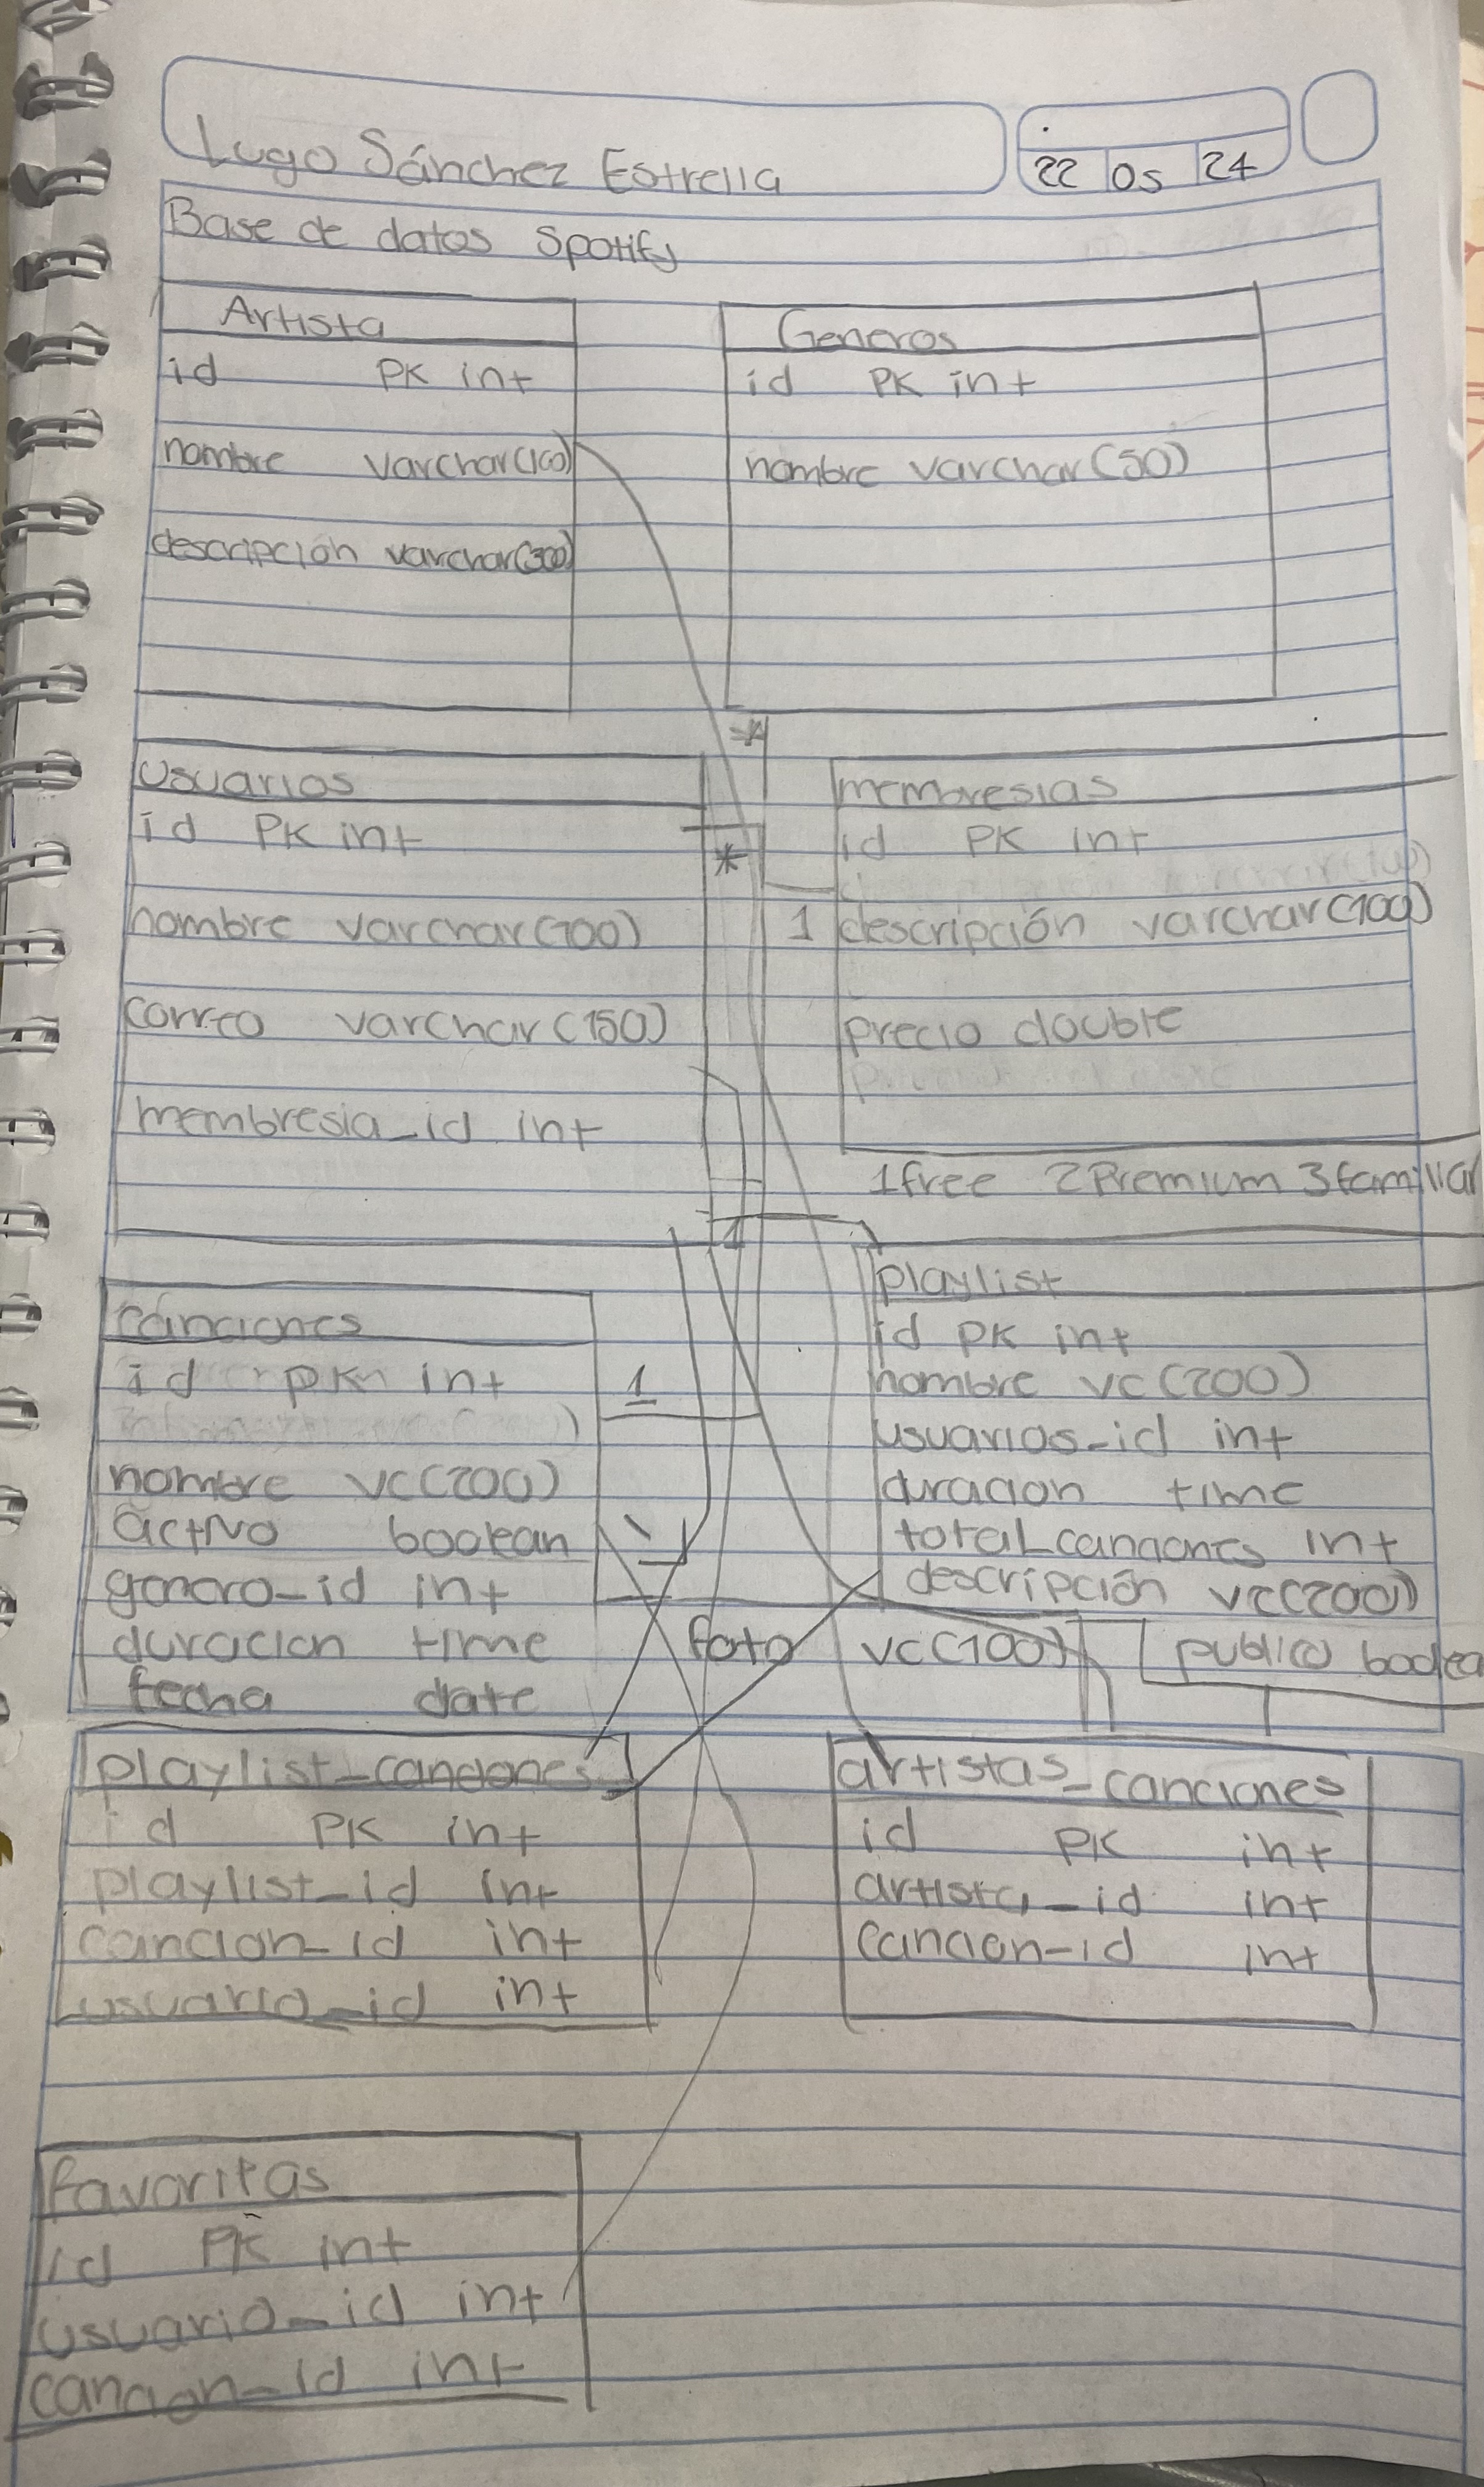 Lugo Sánchez Estrella
22 05 24
Base de datos Spotify
Artista
id PK int
nombre varchar(100)
descripción varchar(300)
Generos
id PK int
nombre varchar(50)
*
usuarios
id PK int
nombre varchar(100)
correo varchar(150)
membresia_id int
*
1
membresias
id PK int
descripción varchar(100)
precio double
1 free 2 Premium 3 familiar
1
canciones
id pk int
nombre vc(200)
activo boolean
genero_id int
duracion time
fecha date
1
playlist
id PK int
nombre vc(200)
usuarios_id int
duracion time
total_canciones int
descripción vc(200)
foto vc(100)
publico boolea
playlist_canciones
id PK int
playlist_id int
cancion_id int
usuario_id int
artistas_canciones
id PK int
artista_id int
cancion_id int
favoritas
id PK int
usuario_id int
cancion_id int